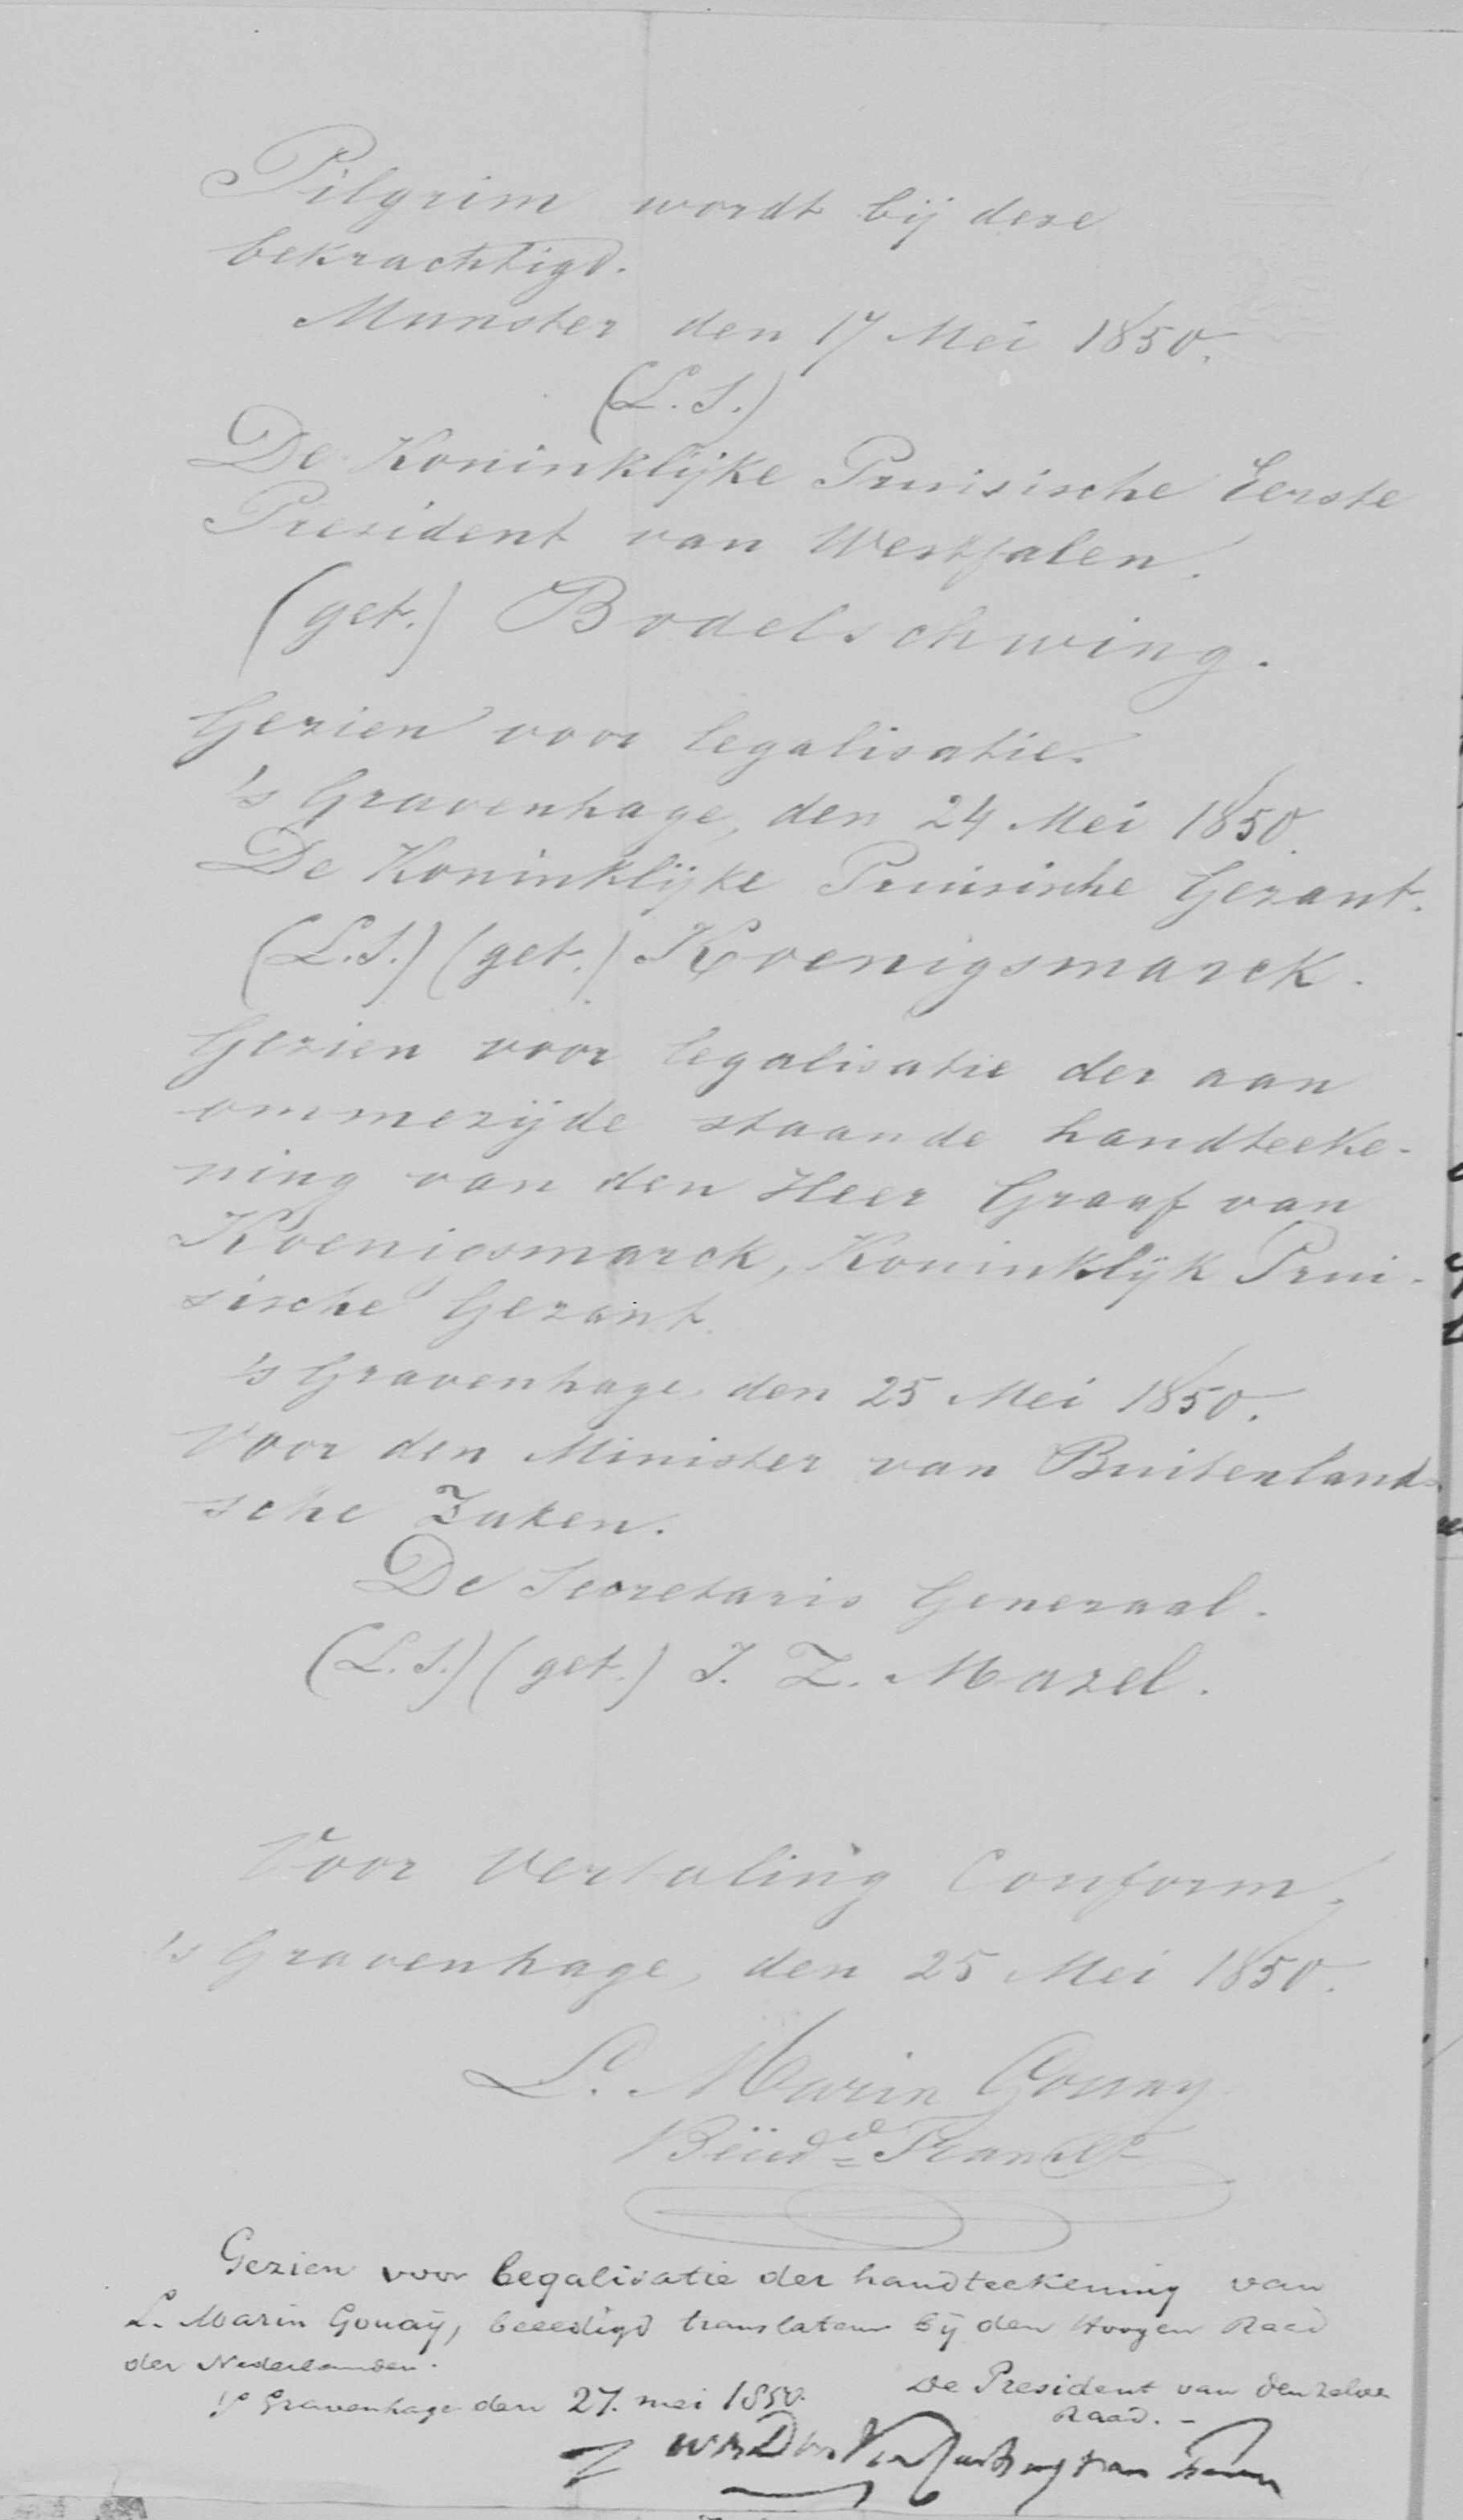 Pilgrim wordt bij deze
bekrachtigd.
Munster den 17 Mei 1850.
(L. S.)
De Koninklijke Pruisische Eerste
President van Westfalen.
(get.) Bodelschwing.
Gezien voor legalisatie.
's Gravenhage, den 24 Mei 1850.
De Koninklijke Pruisische Gezant.
(L.S.) (get.) Koenigsmarck.
Gezien voor legalisatie der aan
ommezijde staande handteeke-
ning van den Heer Graaf van
Koenigsmarck, Koninklijk Prui-
sische Gezant.
's Gravenhage den 25 Mei 1850.
Voor den Minister van Buitenland-
sche Zaken.
De Secretaris Generaal.
(L.S.) (get.) J. Z. Mazel.
Voor Vertaling Conform.
's Gravenhage, den 25 Mei 1850.
L. Marin Gouay
Bëed.d Translt
Gezien voor legalisatie der handteekening van
L. Marin Gouaÿ, beeedigd translateur bij den Hoogen Raad
der Nederlanden.
's Gravenhage den 27. mei 1850.
De President van denzelven
Raad. -